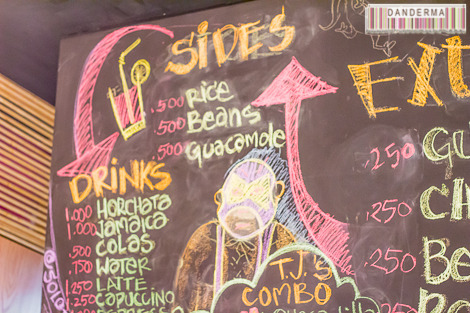 DANDERMA
SIDES
.500 RICE
.500 BEANS
.500 GUACAMOLE
DRINKS
1.000 HORCHATA
1.000 JAMAICA
.500 COLAS
.750 WATER
1.250 LATTE
1.250 CAPUCCINO
T.J.'S
COMBO
.250
.250
.250